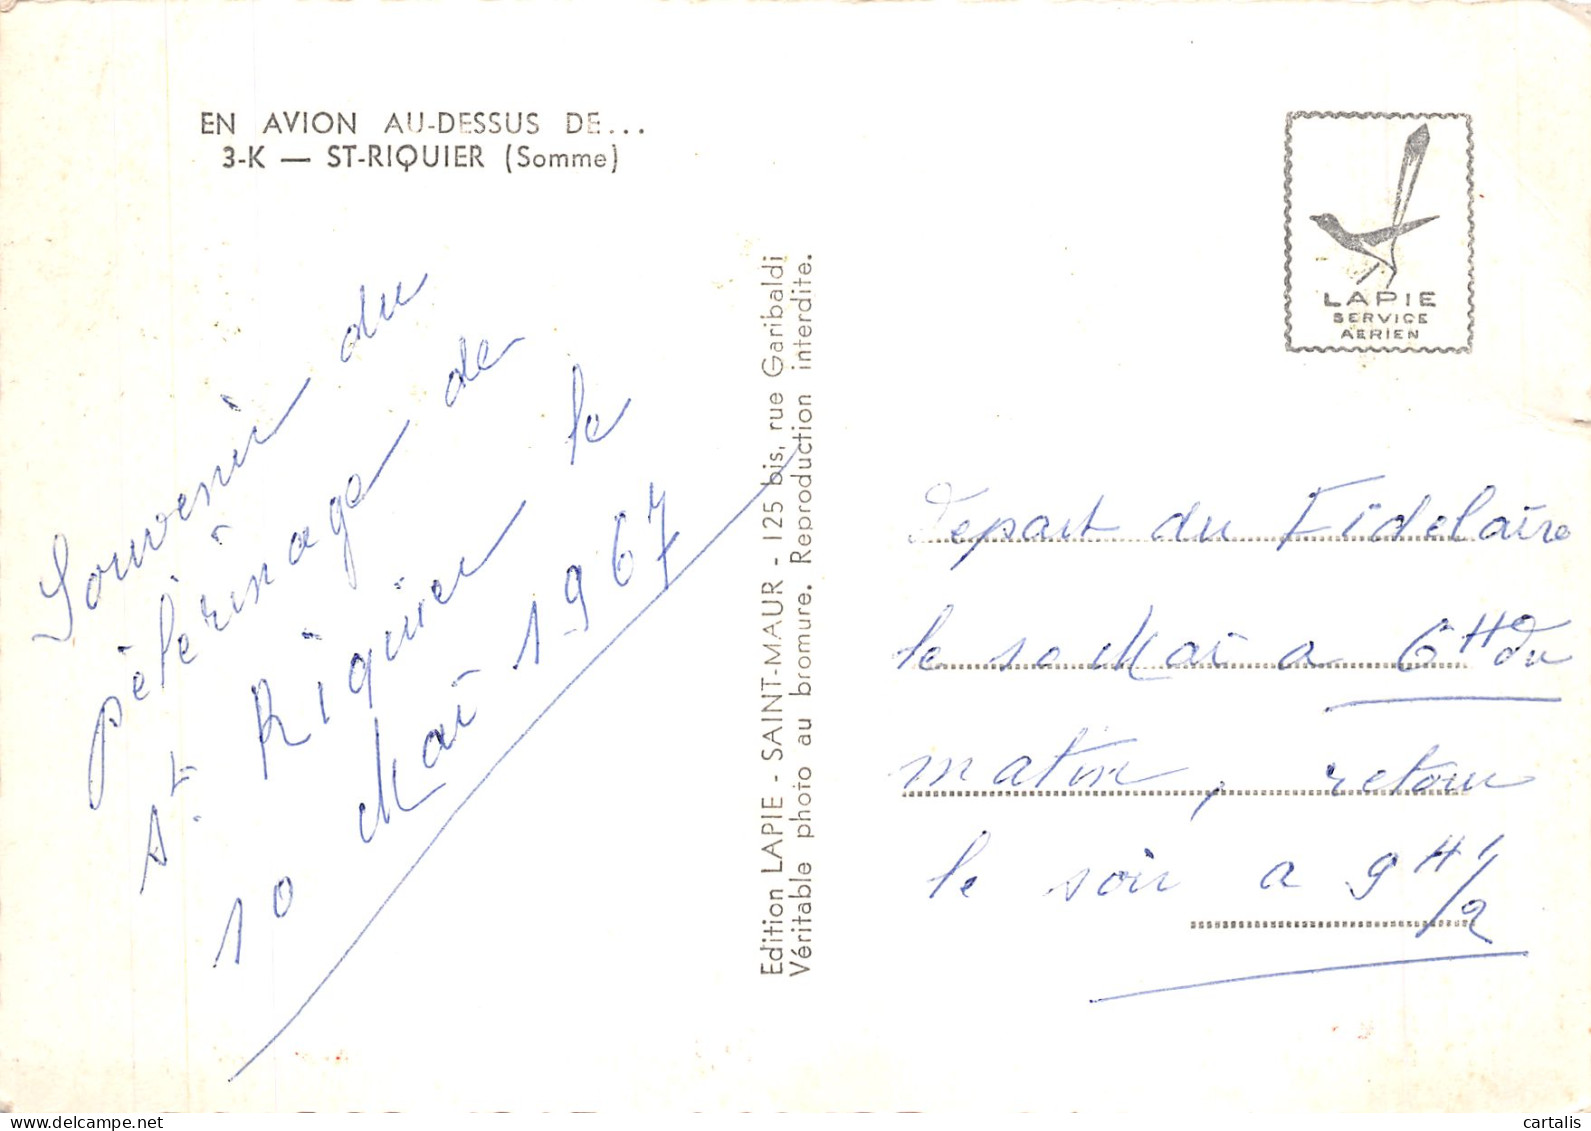 EN AVION AU-DESSUS DE...
3-K — ST-RIQUIER (Somme)
LAPIE
SERVICE
AERIEN
Souvenir du
pélérinage de
St. Riquier le
10 Mai 1967
Edition LAPIE - SAINT-MAUR - 125 bis, rue Garibaldi
Véritable photo au bromure. Reproduction interdite.
Depart du Fidelaire
le 10 Mai a 6H du
matin, retour
le soir a 9H 1/2
cartalis